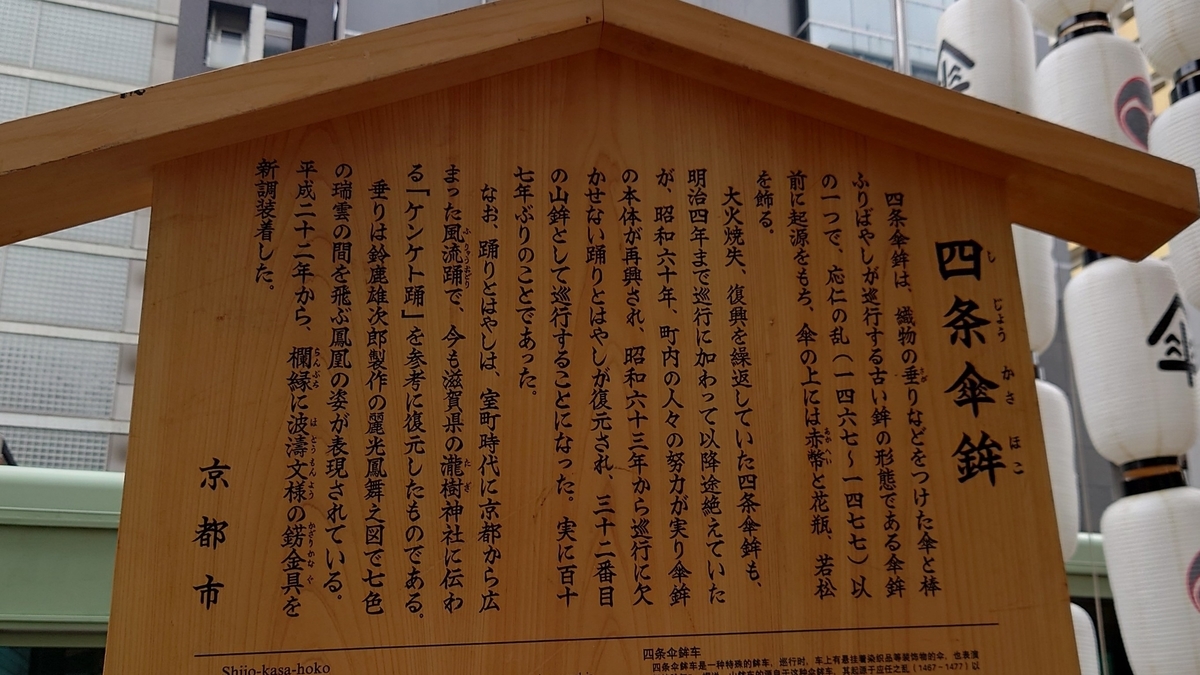 四条傘鉾
四条傘鉾は、織物の垂りなどをつけた傘と棒
ふりばやしが巡行する古い鉾の形態である傘鉾
の一つで、応仁の乱(一四六七〜一四七七)以
前に起源をもち、傘の上には赤幣と花瓶、若松
を飾る。
大火焼失、復興を繰返していた四条傘鉾も、
明治四年まで巡行に加わって以降途絶えていた
が、昭和六十年、町内の人々の努力が実り傘鉾
の本体が再興され、昭和六十三年から巡行に欠
かせない踊りとはやしが復元され、三十二番目
の山鉾として巡行することになった。実に百十
七年ぶりのことであった。
なお、踊りとはやしは、室町時代に京都から広
まった風流踊で、今も滋賀県の瀧樹神社に伝わ
る「ケンケト踊」を参考に復元したものである。
垂りは鈴鹿雄次郎製作の麗光鳳舞之図で七色
の瑞雲の間を飛ぶ鳳凰の姿が表現されている。
平成二十二年から、欄縁に波濤文様の錺金具を
新調装着した。
京都市
Shijo-kasa-hoko
四条伞鉾车
四条伞鉾车是一种特殊的鉾车，巡行时，车上有悬挂着染织品等装饰物的伞，也表演
傘